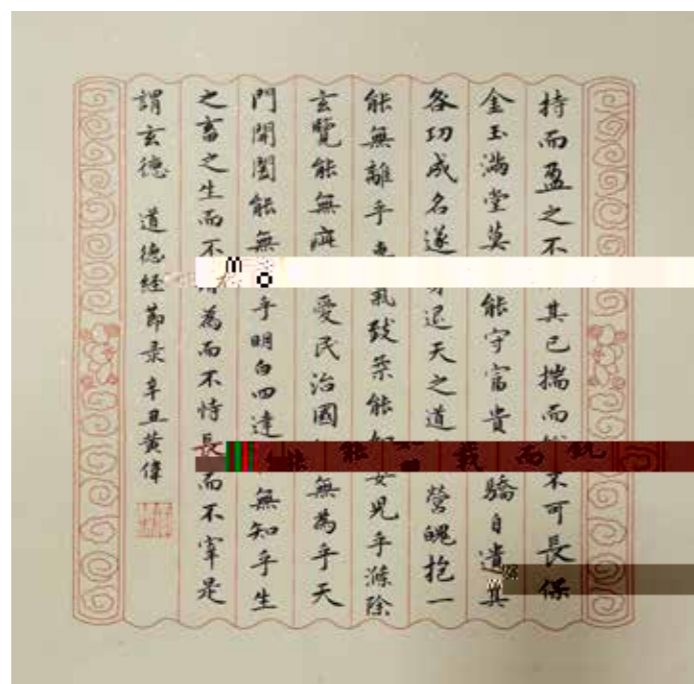 持而盈之不其已揣而不可長保
金玉滿堂莫能守富貴驕自遺其
咎功成名遂身退天之道營魄抱一
能無離乎專氣致柔能如女兒乎滌除
玄覽能無疵愛民治國無為乎天
門開闔能無乎明白四達無知乎生
之畜之生而不為而不恃長而不宰是
謂玄德 道德經節录 辛丑黃偉